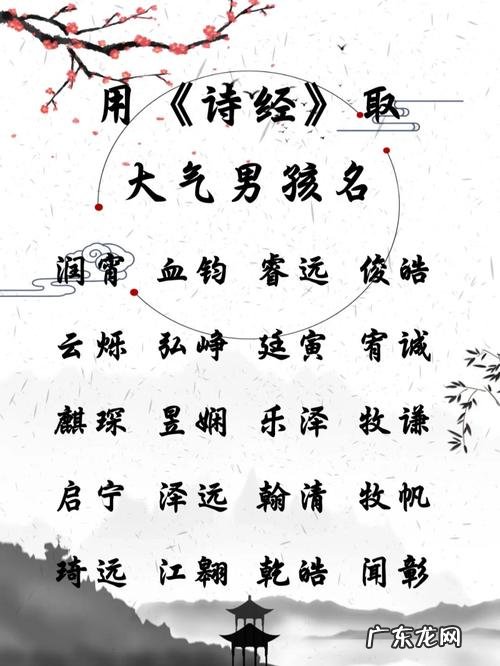 用《诗经》取
大气男孩名
润霄 血钧 睿远 俊皓
云烁 弘峥 廷寅 宥诚
麒琛 昱娴 乐泽 牧谦
启宁 泽远 翰清 牧帆
琦远 江翱 乾皓 闻彰
广东龙网